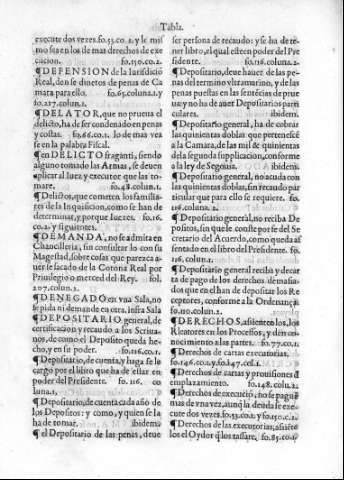 Tabla.
execute dos vezes. fo.53.co.2. y le mis
mo sea en los de mas derechos de exe
cucion. fo.150.co.2.
¶DEFENSION de la Iurisdició
Real, den se dineros de penas de Ca
mara para ello. fo.65.coluna.1.y
fo.217.colun.1.
¶DELATOR, que no prueua el
delicto, ha de ser condenado en penas
y costas. fo.66.co.1. lo de mas vea
se en la palabra Fiscal.
¶en DELICTO fraganti, siendo
alguno tomado las Armas, se deuen
aplicar al Iuez y executor que las to-
mare. fo.48.colun.1.
¶Delictos, que cometen los familia-
res de la Inquisicion, como se han de
determinar, y por que Iuezes. fo.16.
co.2. y siguientes.
¶DEMANDA, no se admita en
Chancilleria, sin consultar lo con su
Magestad, sobre cosas que parezca a-
uer se sacado de la Corona Real por
Priuilegio o merced del Rey. fol.
207.colun.2.
¶DENEGADO en vna Sala, no
se pida ni demande en otra. infra Sala
¶DEPOSITARIO general, de
certificacion y recaudo a los Scriua-
nos, de como el Deposito queda he-
cho, y en su poder. fo.116.co.1.
¶Depositario, de cuenta, y haga se le
cargo por el libro que ha de estar en
poder del Presidente. fo.116.co
luna.1.
¶Depositario, de cuenta cada año de
los Depositos: y como, y quien se la
ha de tomar. ibidem.
¶el Depositario de las penas, deue
ser persona de recaudo: y se ha de te-
ner libro, el qual esté en poder del Pre
sidente. fo.116.coluna.2.
¶Depositario, deue hauer de las pe-
nas del termino vltramarino, y de las
penas puestas en las sentēcias de prue
ua: y no ha de auer Depositarios parti
culares. ibidem.
¶Depositario general, ha de cobrar
las quinientas doblas que pertenescē
a la Camara, de las mil & quinientas
de la segunda supplicacion, conforme
a la ley de Segouia. ibidem.
¶Depositario general, no acuda con
las quinientas doblas, sin recaudo par
ticular que para ello se requiere. fo.
116.coluna.2.
¶Depositario general, no reciba De
positos, sin que le conste por fe del Se
cretario del Acuerdo, como queda as
sentado en el libro del Presidente. fo.
116.colun.2.
¶Depositario general reciba y de car
ta de pago de los derechos demasia-
dos que en el han de depositar los Re
ceptores, conforme a la Ordenança.
fo.110.colun.2.
¶DERECHOS, assienten los, los
Relatores en los Processos, y den co-
nocimiento a las partes. fo.77.co.1.
¶Derechos de cartas executorias.
fo.146.co.2.y fo.147.col.1.
¶Derechos de cartas y prouisiones d̄
emplazamiento. fo.148.colu.2.
¶Derechos de execució, no se pagué
mas de vna vez, aunq̄ la deuda se exe-
cute dos vezes. fo.53.co.2. y fo.150.c.2.
¶Derechos de las executorias, assiēte
los el Oydor q̄ los tassare. fo.85.co.1.